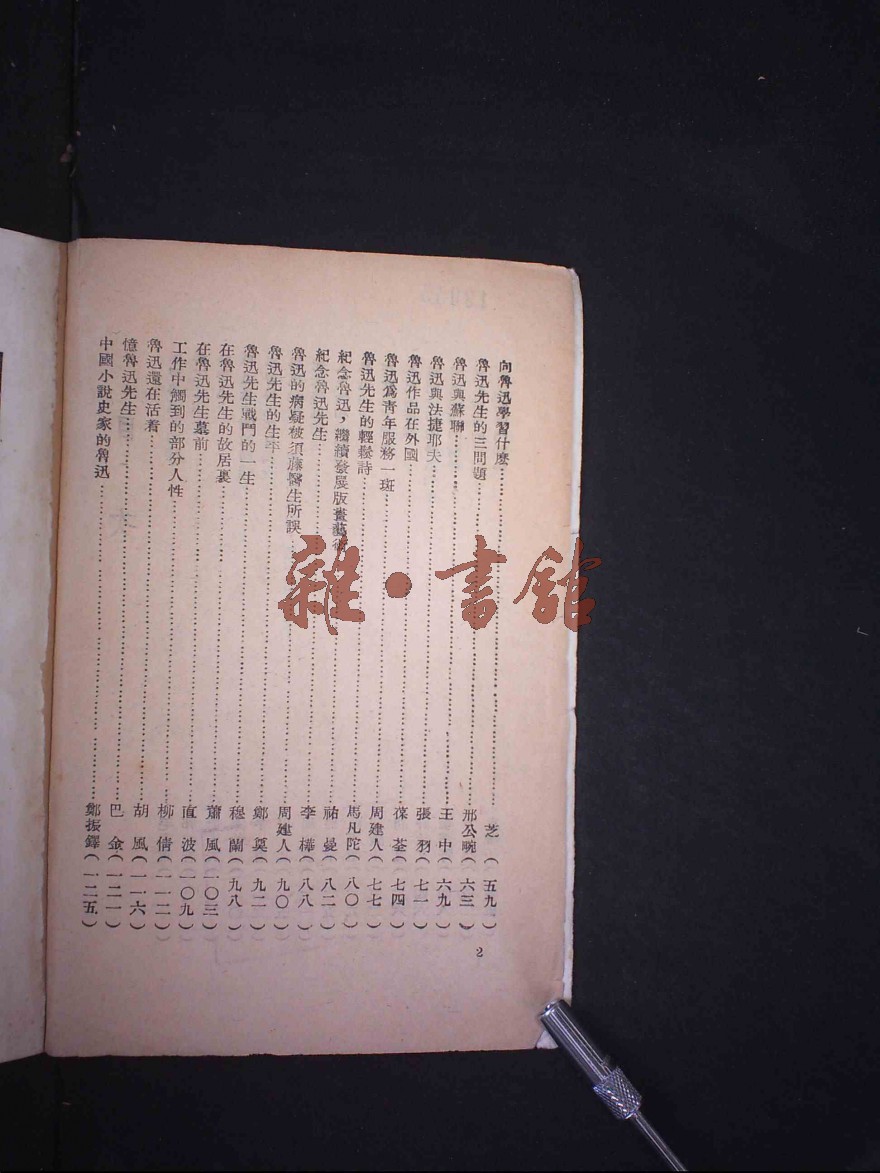 向魯迅學習什麽……芝(五九)
魯迅先生的三問題……邢公畹(六三)
魯迅與蘇聯……王中(六九)
魯迅與法捷耶夫……張羽(七一)
魯迅作品在外國……葆荃(七四)
魯迅爲青年服務一斑……周建人(七七)
魯迅先生的輕鬆詩……馬凡陀(八〇)
紀念魯迅，繼續發展版畫藝術……祐曼(八二)
紀念魯迅先生……李樺(八八)
魯迅的病疑被須藤醫生所誤……周建人(九〇)
魯迅先生的生平……鄭奠(九二)
魯迅先生戰鬥的一生……穆蘭(九八)
在魯迅先生的故居裏……蕭風(一〇三)
在魯迅先生墓前……直波(一〇九)
工作中觸到的部分人性……柳倩(一一二)
魯迅還在活着……胡風(一一六)
憶魯迅先生……巴金(一二一)
中國小說史家的魯迅……鄭振鐸(一二五)
2
雜·書館